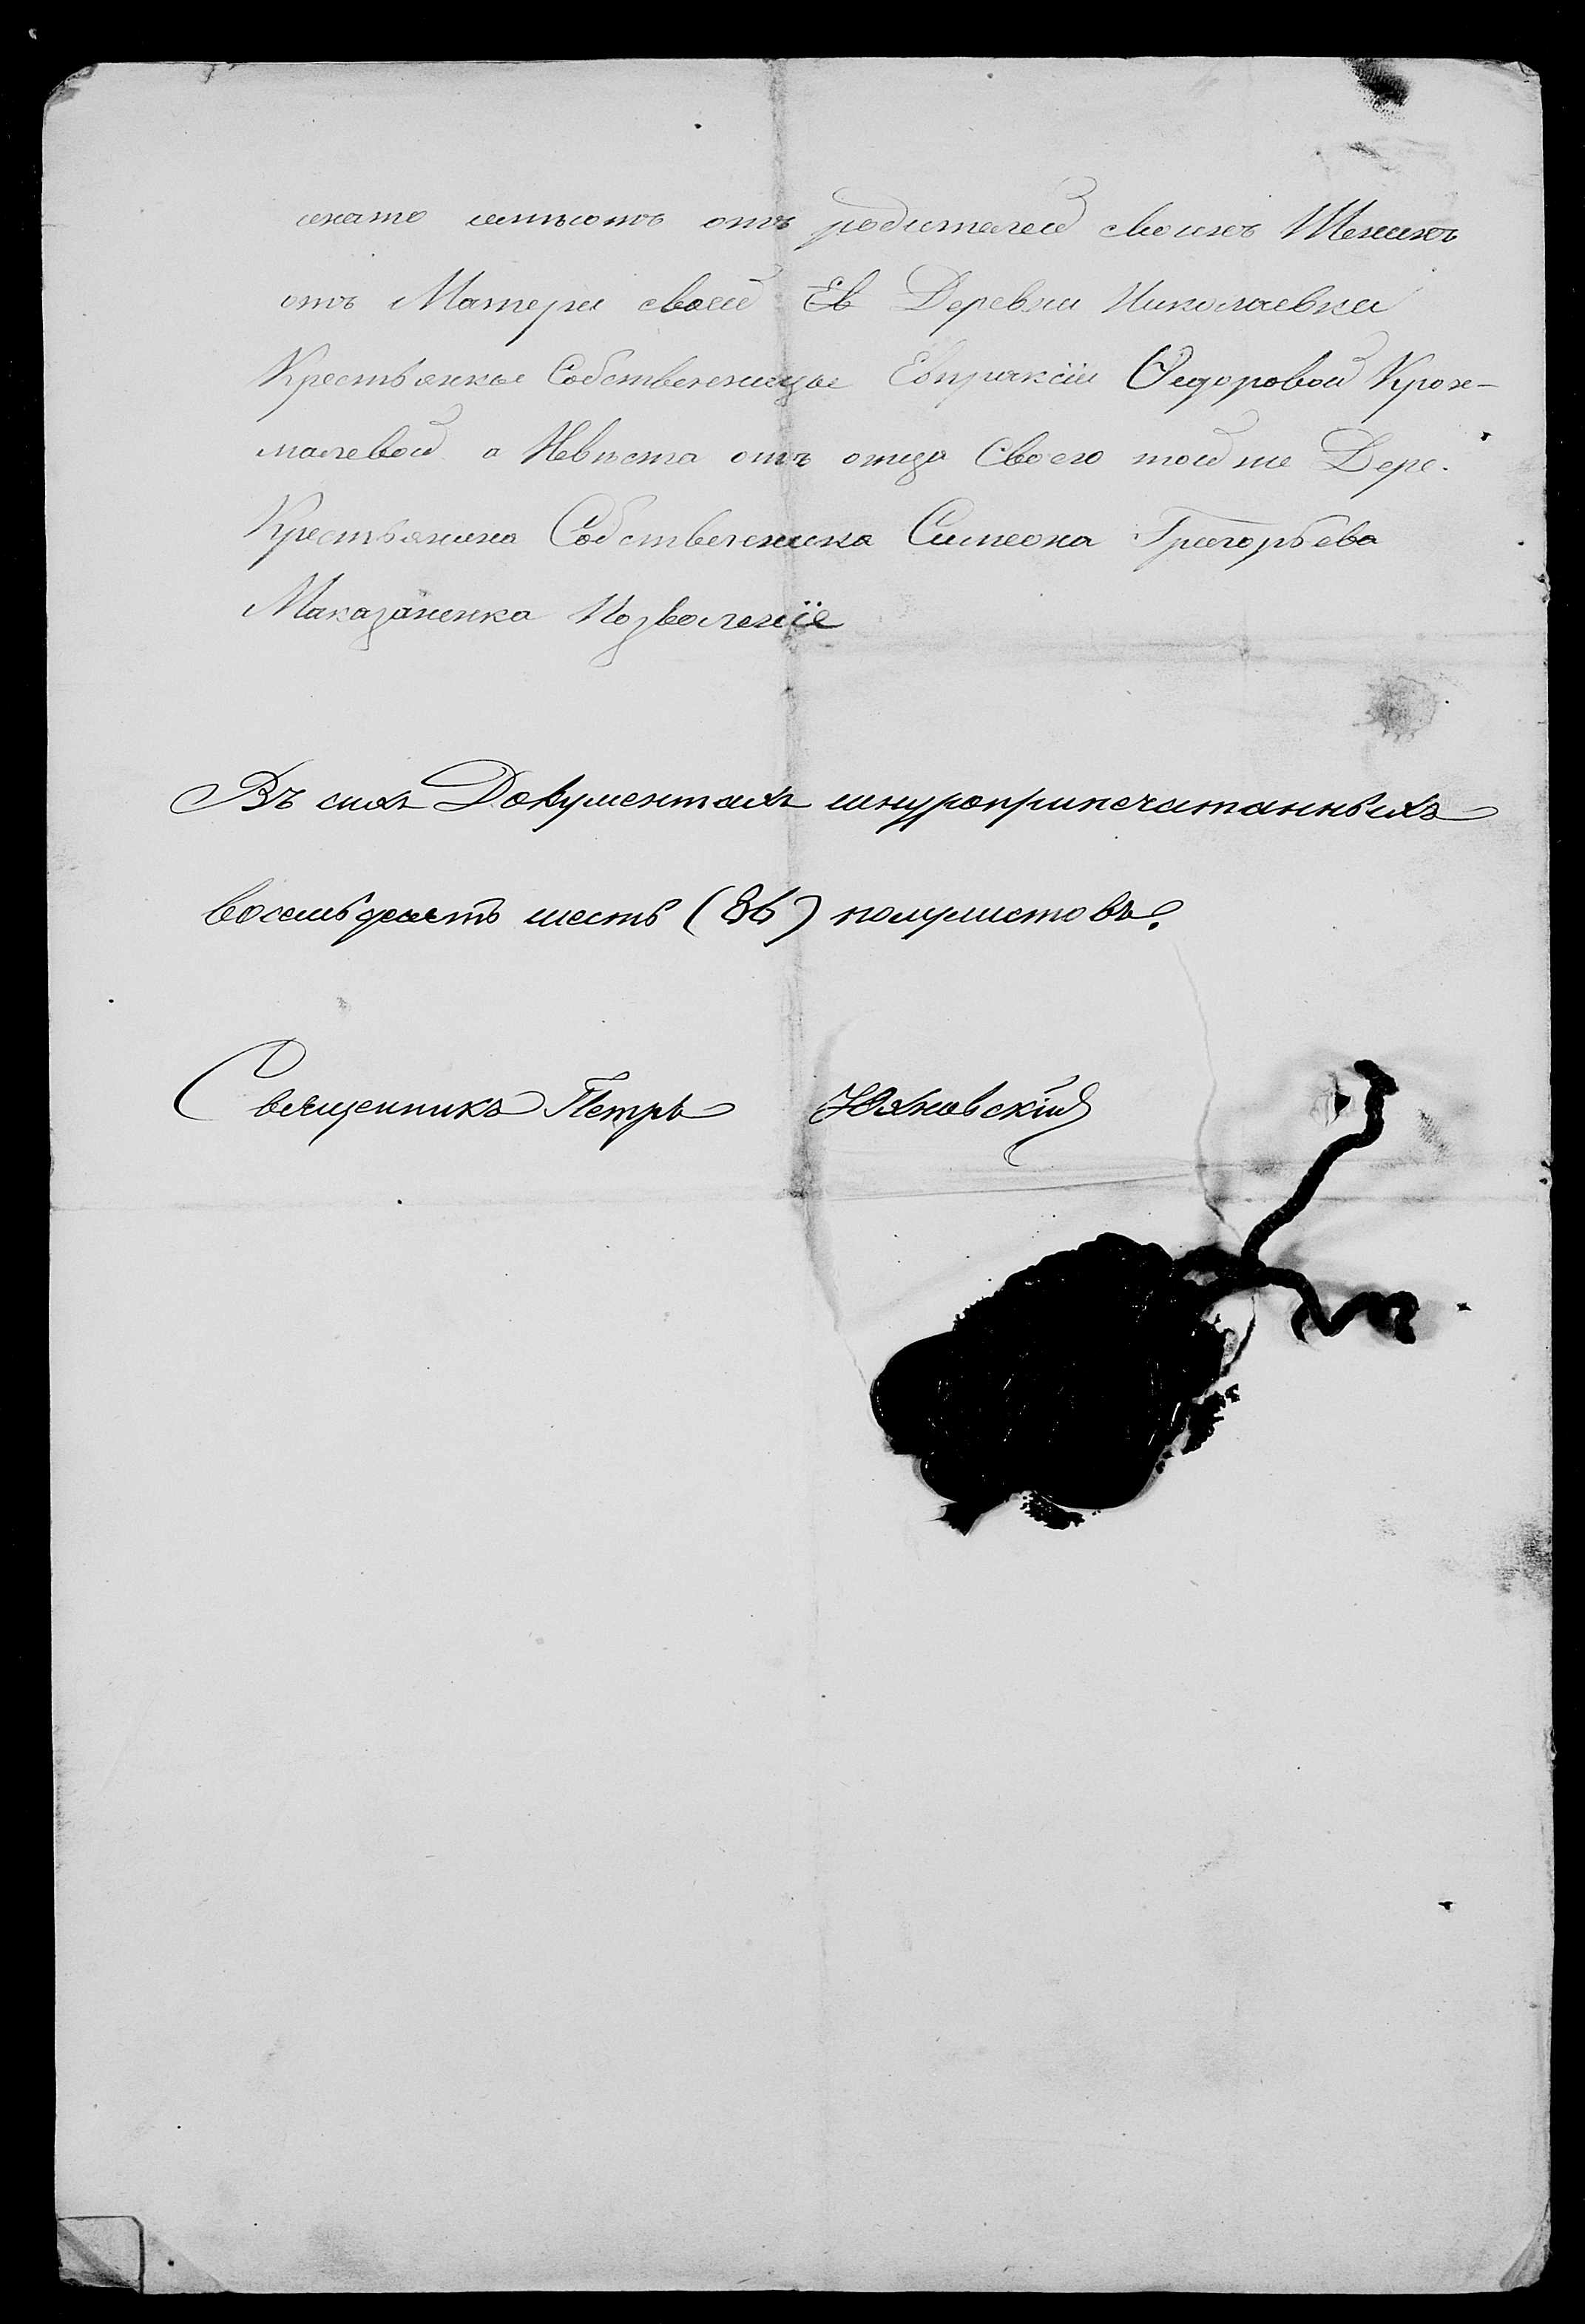 нато имѣютъ отъ родителей своихъ Женихъ
отъ Матери своей Ев Деревни Николаевки
Крестьянкы Собственницы Евпраксіи Ѳедоровой Крох-
малевой а Невѣста отъ отца Своего той же Дере.
Крестьянина Собственника Симеона Григорьева
Маказаненка Позволеніе
Въ сихъ Документахъ шнуроприпечатанныхъ
восемьдесятъ шесть (86) полулистовъ.
Священникъ Петръ Юяновскій